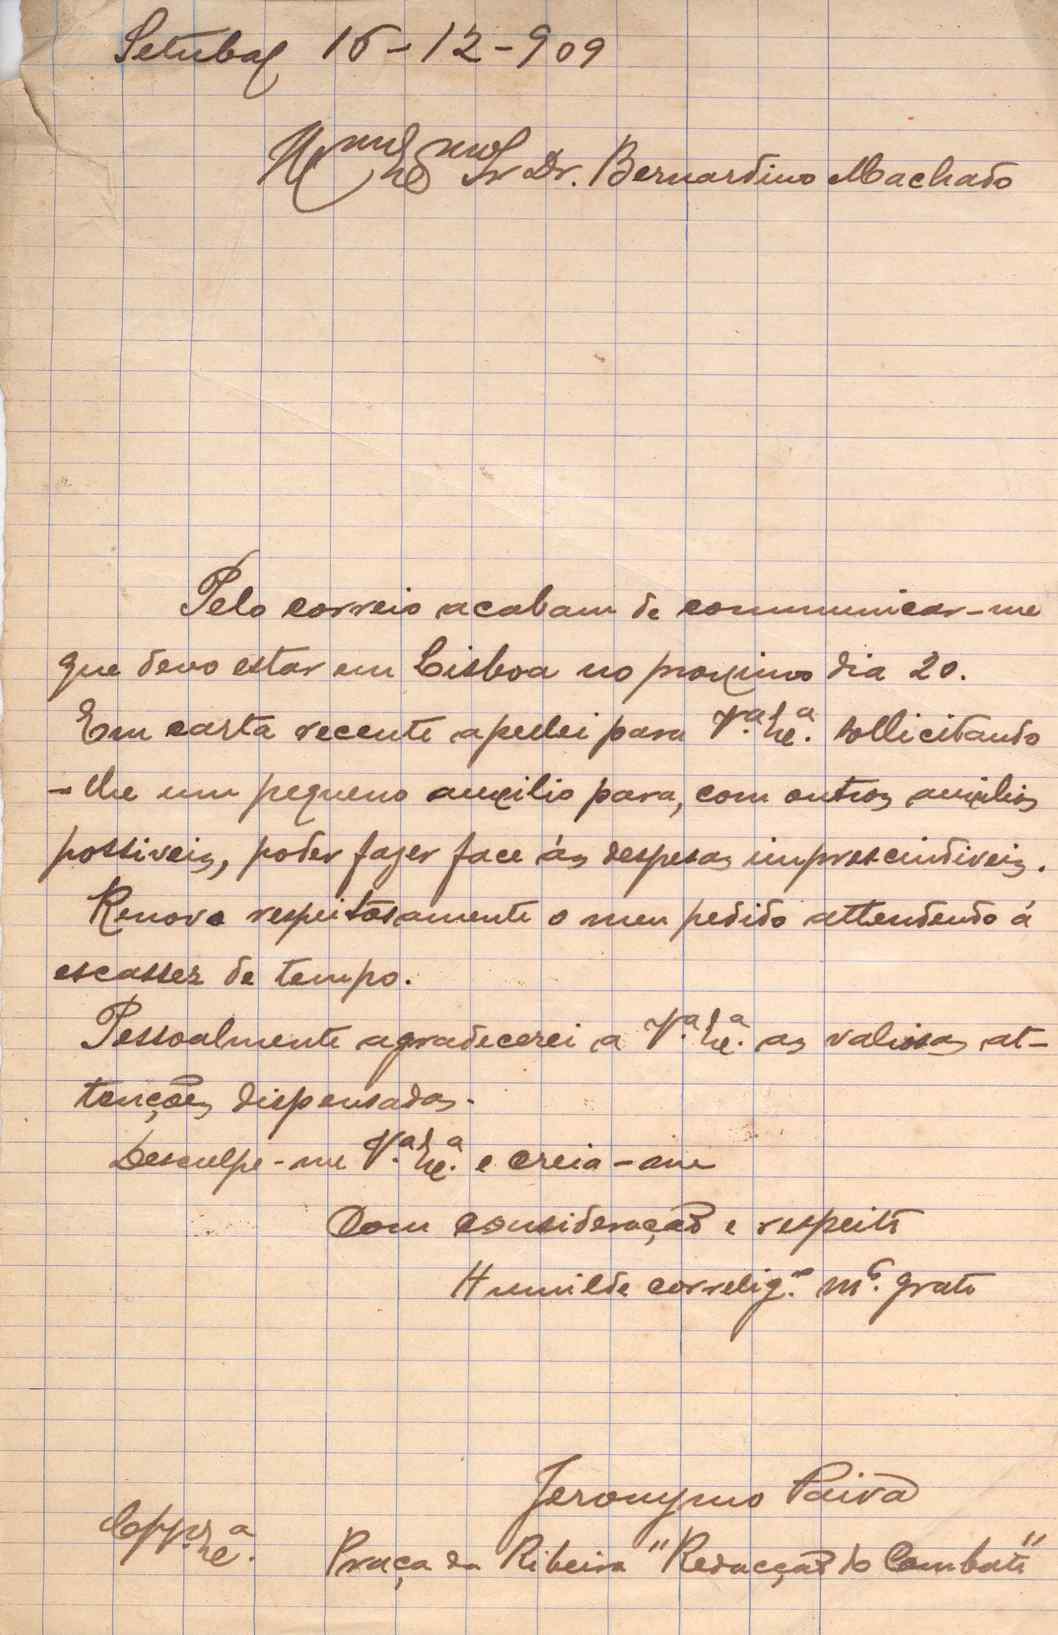 Setubal 15-12-909
Illmo Exmo Sr Dr. Bernardino Machado
Pelo correio acabam de communicar-me
que devo estar em Lisboa no proximo dia 20.
Em carta recente apellei para V.ª Ex.ª sollicitando
-lhe um pequeno auxilio para, com outros auxilios
possiveis, poder fazer face ás despesas imprescindiveis.
Renovo respeitosamente o meu pedido attendendo á
escassez de tempo.
Pessoalmente agradecerei a V.ª Ex.ª as valiosas at-
tenções dispensadas.
Desculpe-me V.ª Ex.ª e creia-me
Com consideração e respeito
Humilde correlig.º m.to grato
Jeronymo Paiva
Praça da Ribeira "Redacção do Combate"